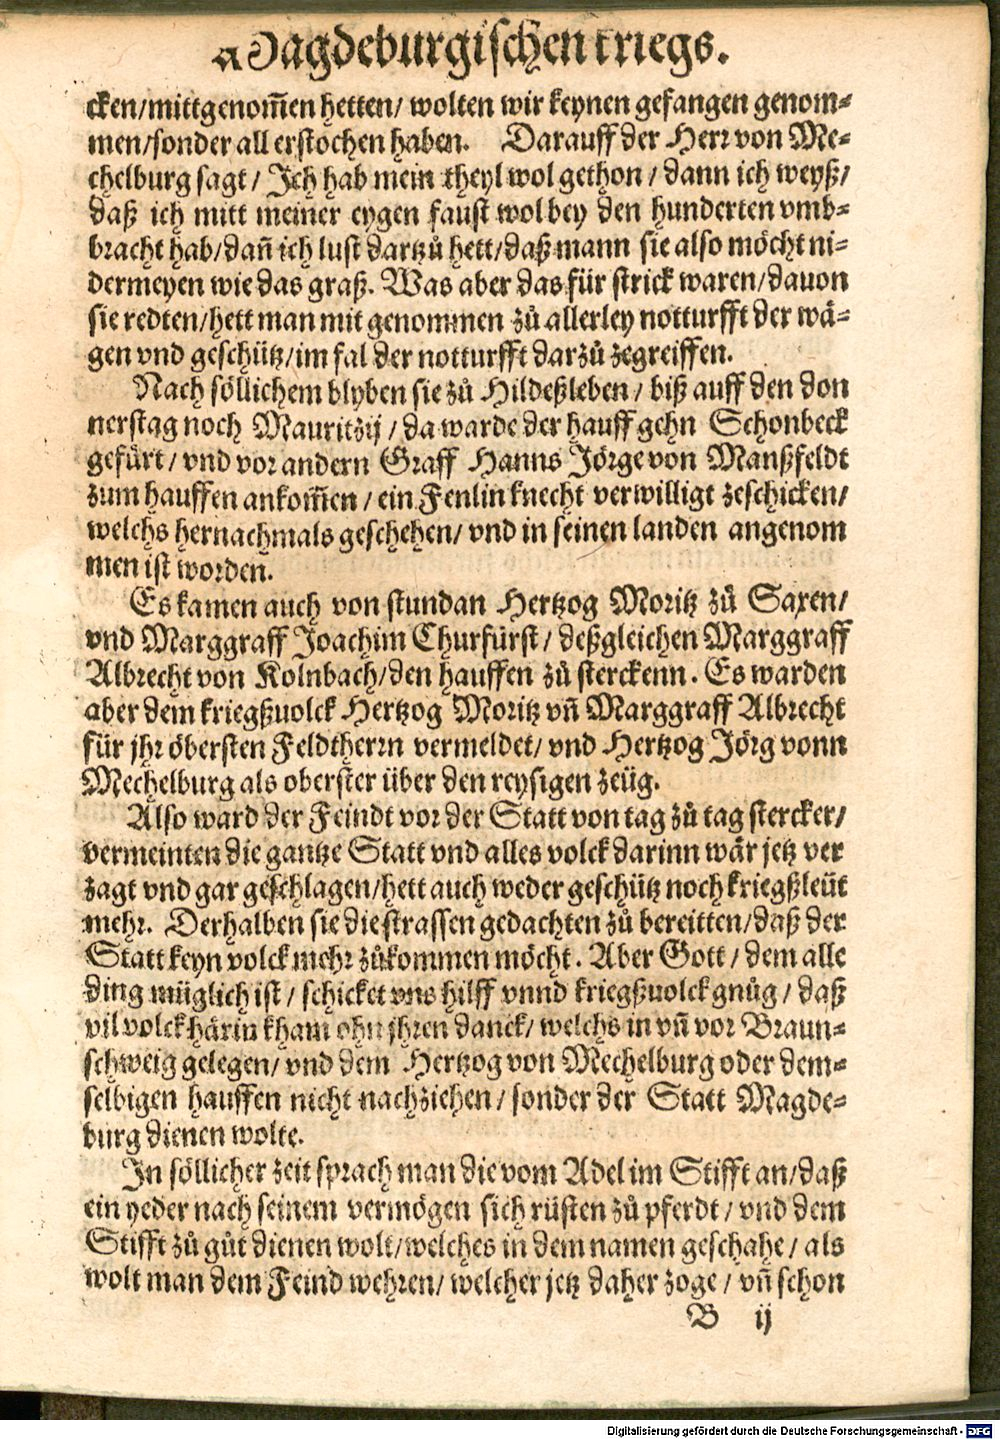 Magdeburgischen kriegs.
cken/mittgenom̃en hetten/ wolten wir keynen gefangen genom⸗
men/sonder all erstochen haben. Darauff der Herr von Me⸗
chelburg sagt/ Jch hab mein theyl wol gethon/ dann ich weyß/
daß ich mitt meiner eygen faust wol bey den hunderten vmb⸗
bracht hab/dañ ich lust dartzů hett/daß mann sie also möcht ni⸗
dermeyen wie das graß. Was aber das für strick waren/dauon
sie redten/hett man mit genommen zů allerley notturfft der wä⸗
gen vnd geschütz/im fal der notturfft darzů zegreiffen.
Nach söllichem blyben sie zů Hildeßleben/ biß auff den don
nerstag noch Mauritzij/ da warde der hauff gehn Schonbeck
gefürt/ vnd vor andern Graff Hanns Jörge von Manßfeldt
zum hauffen ankom̃en/ ein Fenlin knecht verwilligt zeschicken/
welchs hernachmals geschehen/ vnd in seinen landen angenom
men ist worden.
Es kamen auch von stundan Hertzog Moritz zů Saxen/
vnd Marggraff Joachim Churfürst/ deßgleichen Marggraff
Albrecht von Kolnbach/den hauffen zů sterckenn. Es warden
aber dem kriegßuolck Hertzog Moritz vñ Marggraff Albrecht
für jhr öbersten Feldtherrn vermeldet/ vnd Hertzog Jörg vonn
Mechelburg als oberster über den reysigen zeüg.
Also ward der Feindt vor der Statt von tag zů tag stercker/
vermeinten die gantze Statt vnd alles volck darinn wär jetz ver
zagt vnd gar geschlagen/hett auch weder geschütz noch kriegßleüt
mehr. Derhalben sie die strassen gedachten zů bereitten/daß der
Statt keyn volck mehr zůkommen möcht. Aber Gott/ dem alle
ding müglich ist/ schicket vns hilff vnnd kriegßuolck gnůg/ daß
vil volck härin kham ohn jhren danck/ welchs in vñ vor Braun⸗
schweig gelegen/ vnd dem Hertzog von Mechelburg oder dem⸗
selbigen hauffen nicht nachziehen/ sonder der Statt Magde⸗
burg dienen wolte.
Jn söllicher zeit sprach man die vom Adel im Stifft an/daß
ein yeder nach seinem vermögen sich rüsten zů pferdt/ vnd dem
Stifft zů gůt dienen wolt/welches in dem namen geschahe/ als
wolt man dem Feind wehren/ welcher jetz daher zoge/ vñ schon
B ij
Digitalisierung gefördert durch die Deutsche Forschungsgemeinschaft - DFG